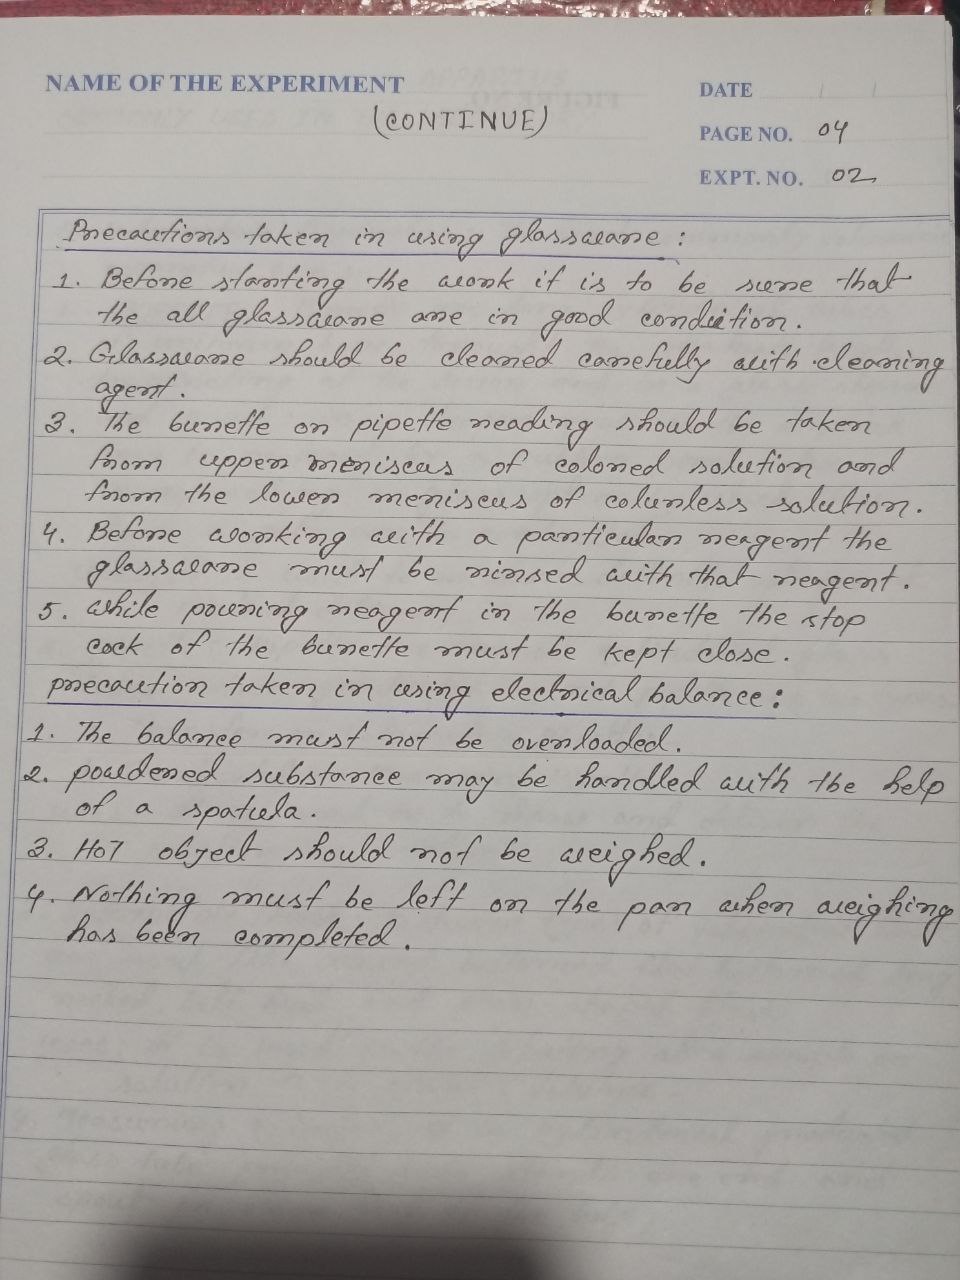 NAME OF THE EXPERIMENT
(CONTINUE)
DATE / /
PAGE NO. 04
EXPT. NO. 02
Precautions taken in using glassware :
1. Before starting the work if is to be sure that
the all glassware are in good condition.
2. Glassware should be cleaned carefully with cleaning
agent.
3. The burette or pipette reading should be taken
from upper meniscus of colored solution and
from the lower meniscus of colurless solution.
4. Before working with a particular reagent the
glassware must be rinsed with that reagent.
5. while pouring reagent in the burette the stop
cock of the burette must be kept close.
precaution taken in using electrical balance :
1. The balance must not be overloaded.
2. powdered substance may be handled with the help
of a spatula.
3. HOT object should not be weighed.
4. Nothing must be left on the pan when weighing
has been completed.